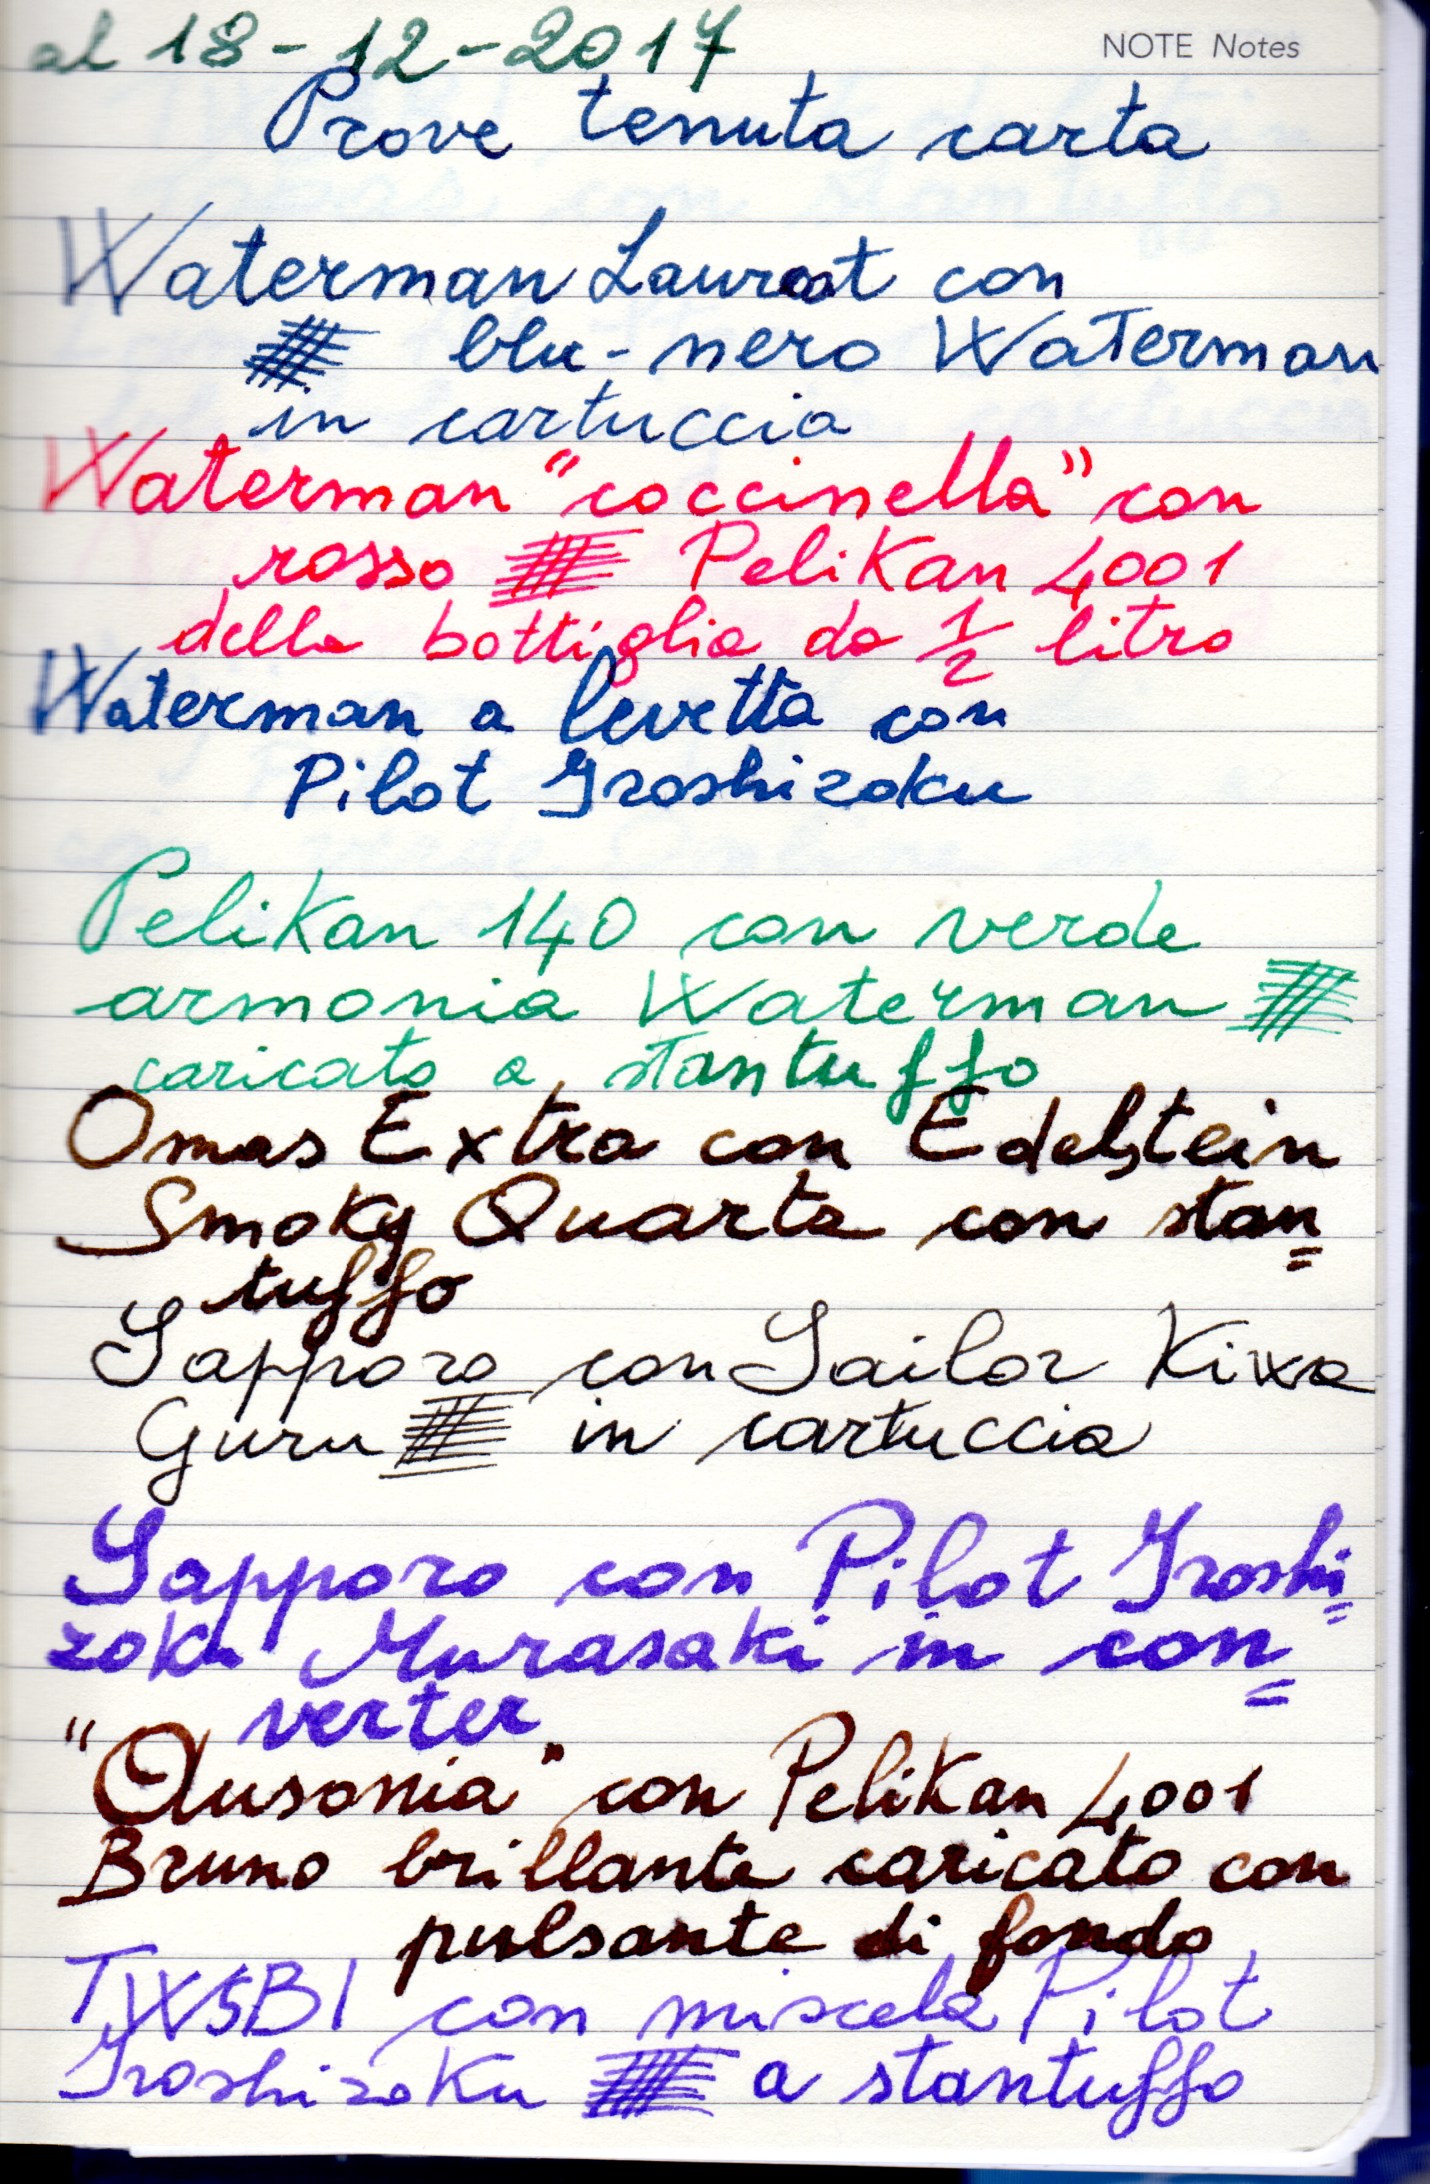 al 18-12-2017
NOTE Notes
Prove tenuta carta
Waterman Laureat con
blu-nero Waterman
in cartuccia
Waterman "coccinella" con
rosso Pelikan 4001
della bottiglia da 1/2 litro
Waterman a levetta con
Pilot Iroshizoku
Pelikan 140 con verde
armonia Waterman
caricato a stantuffo
Omas Extra con Edelstein
Smoky Quartz con stan=
tuffo
Sapporo con Sailor Kiwa
Guru in cartuccia
Sapporo con Pilot Iroshi=
zoku Murasaki in con=
verter
"Ausonia" con Pelikan 4001
Bruno brillante caricato con
pulsante di fondo
TWSBI con miscela Pilot
Iroshizoku a stantuffo